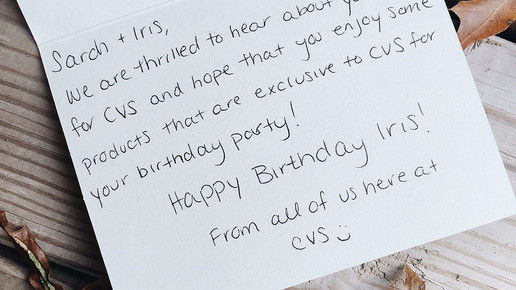 Sarah + Iris,
We are thrilled to hear about
for CVS and hope that you enjoy some
products that are exclusive to CVS for
your birthday party!
Happy Birthday Iris!
From all of us here at
CVS :)